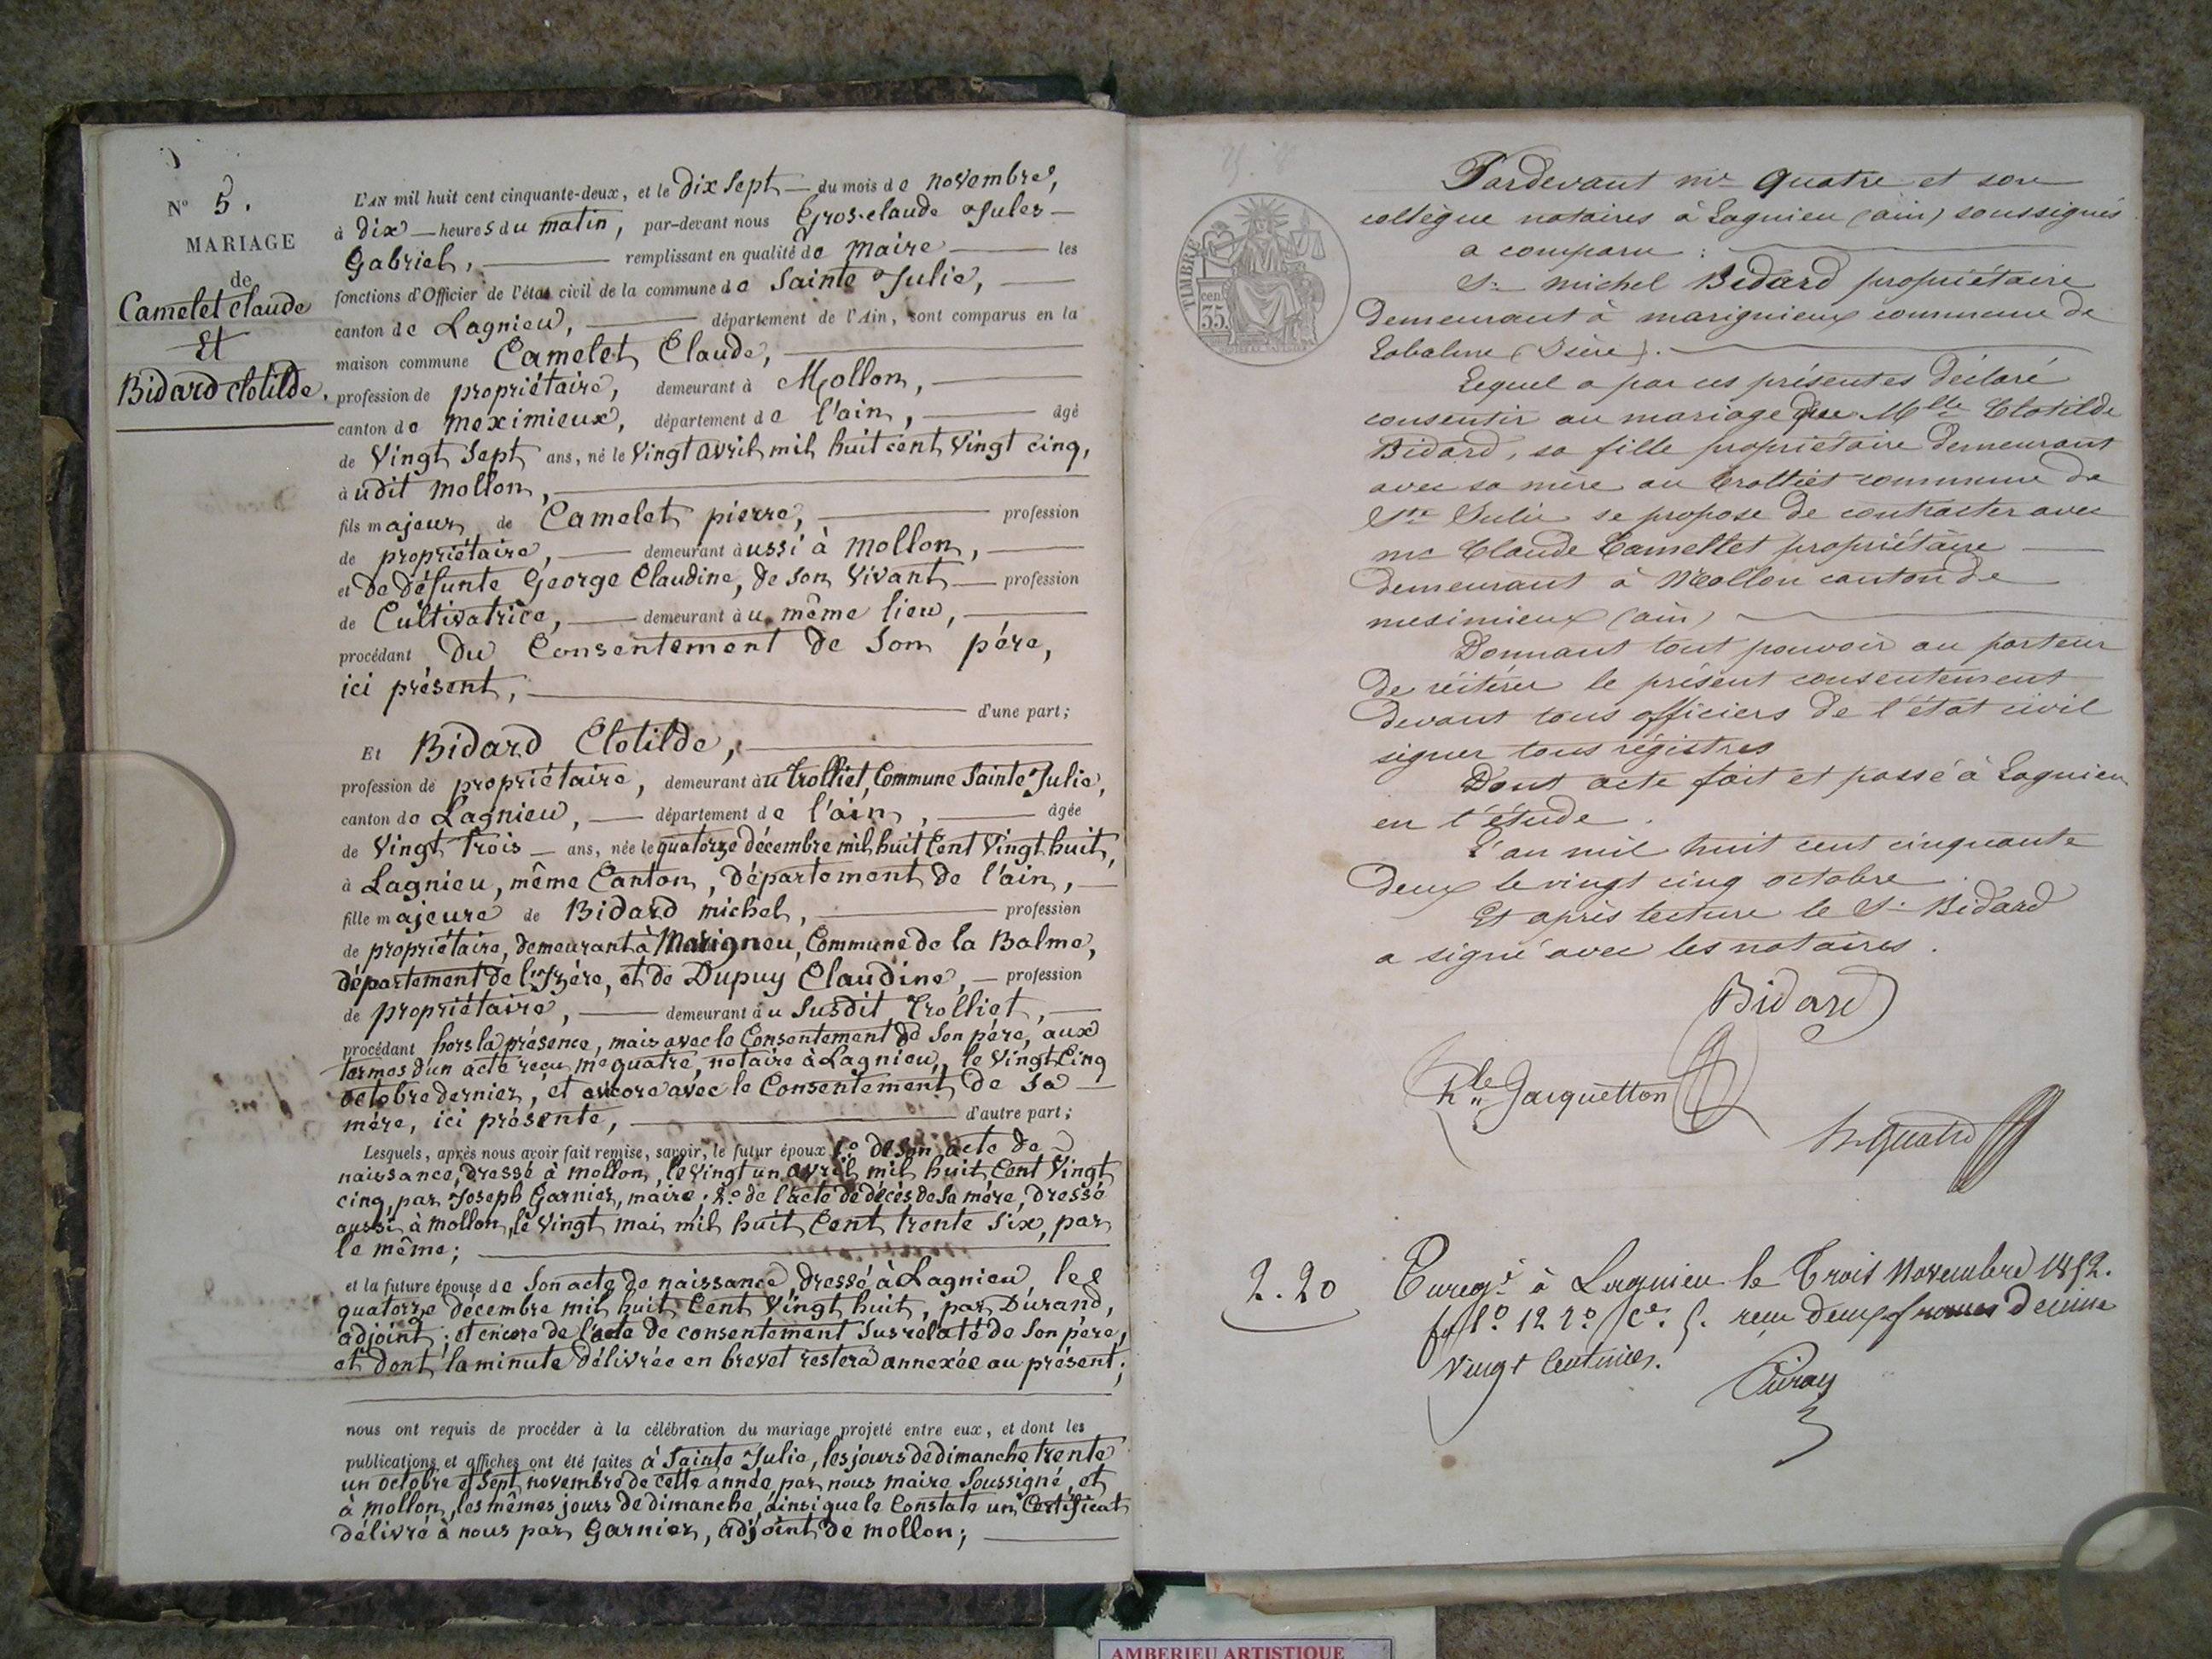 N° 5.
MARIAGE
de
Camelet Claude
Et
Bidard Clotilde.
L'AN mil huit cent cinquante-deux, et le dix Sept du mois de novembre,
à dix heures du matin, par-devant nous Gros-claude Jules
Gabriel, remplissant en qualité de Maire les
fonctions d'Officier de l'état civil de la commune de Sainte Julie,
canton de Lagnieu, département de l'Ain, sont comparus en la
maison commune Camelet Claude,
profession de propriétaire, demeurant à Mollon,
canton de Meximieux, département de l'ain, âgé
de Vingt Sept ans, né le Vingt avril mil huit cent Vingt cinq,
àudit Mollon,
fils majeur de Camelet pierre, profession
de propriétaire, demeurant àussi à Mollon,
et de défunte George Claudine, de son Vivant profession
de Cultivatrice, demeurant àu même lieu,
procédant du Consentement de Son père,
ici présent,
d'une part;
Et Bidard Clotilde,
profession de propriétaire, demeurant àu trolliet, Commune Sainte Julie,
canton de Lagnieu, département de l'ain, âgée
de Vingt trois ans, née le quatorze décembre mil huit Cent Vingt huit,
à Lagnieu, même Canton, département de l'ain,
fille majeure de Bidard michel, profession
de propriétaire, demeurant à Marigneu, Commune de la Balme,
département de l'Izére, et de Dupuy Claudine, profession
de propriétaire, demeurant àu Susdit Trolliet,
procédant hors la présence, mais avec le Consentement de Son père, aux
termes d'un acte reçu me quatre, notaire à Lagnieu, le Vingt Cinq
octobre dernier, et encore avec le Consentement de Sa
mère, ici présente, d'autre part;
Lesquels, après nous avoir fait remise, savoir, le futur époux 1° de son acte de
naissance, dressé à mollon, le vingt un avril mil huit Cent Vingt
cinq, par Joseph Garnier, maire; 2° de l'acte de décès de Sa mère, dressé
aussi à mollon, le Vingt mai mil huit Cent trente Six, par
le même;
et la future épouse de Son acte de naissance, dressé à Lagnieu le
quatorze décembre mil huit Cent Vingt huit, par Durand,
adjoint; et encore de l'acte de consentement Susrélaté de Son père,
et dont la minute délivrée en brevet restera annexée au présent;
nous ont requis de procéder à la célébration du mariage projeté entre eux, et dont les
publications et affiches ont été faites à Sainte Julie, les jours de dimanche trente
un octobre et Sept novembre de cette année, par nous maire Soussigné, et
à mollon, les mêmes jours de dimanche, ainsi que le Constate un Certificat
délivré à nous par Garnier, adjoint de mollon;
TIMBRE
cen. 35
Pardevant me Quatre et son
collègue notaires à Lagnieu (ain) soussignés
a comparu :
Sr michel Bidard propriétaire
demeurant à marignieux commune de
Labalme (Isère).
Lequel a par ces présentes déclaré
consentir au mariage que Mlle Clotilde
Bidard, sa fille propriétaire demeurant
avec sa mère au trolliet commune de
Ste Julie se propose de contracter avec
mr Claude Camellet propriétaire
demeurant à Mollon canton de
meximieux (ain)
Donnant tout pouvoir au porteur
de réitérer le présent consentement
devant tous officiers de l'état civil
signer tous régistres
Dont acte fait et passé à Lagnieu
en l'étude.
L'an mil huit cent cinquante
deux le vingt cinq octobre.
Et après lecture le Sr Bidard
a signé avec les notaires.
Bidard
Jacquetton
Quatre
2.20
Enregé à Lagnieu le trois Novembre 1852.
fol° 12 r° Ce 5. reçu deux francs decime
vingt Centimes.
AMBERIEU ARTISTIQUE